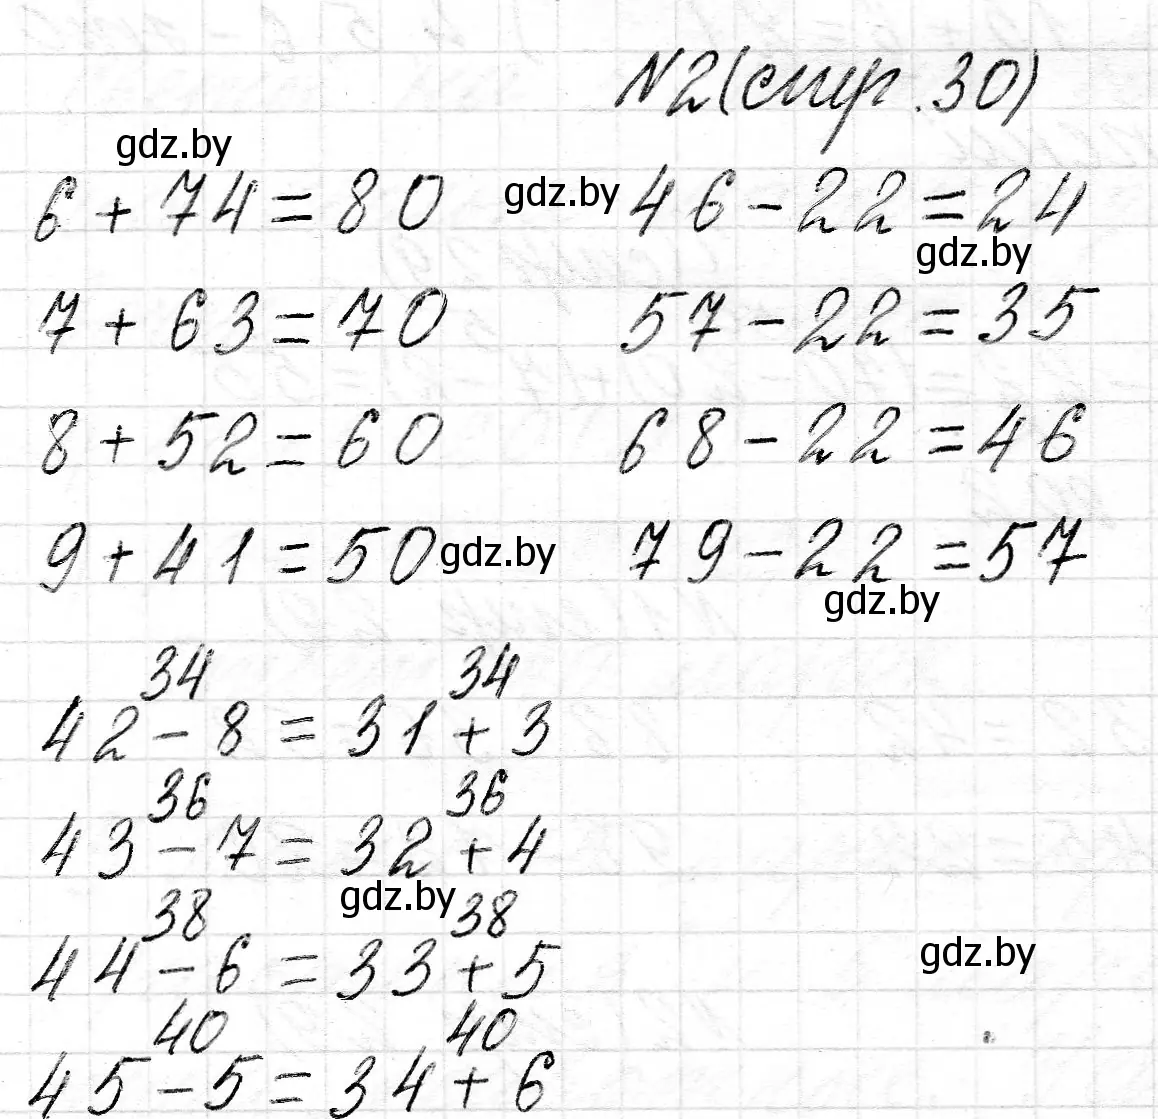 N2(стр. 30)
gdz.by
6 + 74 = 80 gdz.by 46 - 22 = 24
gdz.by
7 + 63 = 70 57 - 22 = 35
8 + 52 = 60 68 - 22 = 46
9 + 41 = 50 gdz.by 79 - 22 = 57
gdz.by
34 34
42 - 8 = 31 + 3
36 36
43 - 7 = 32 + 4
gdz.by
38 38
44 - 6 = 33 + 5 gdz.by
40 40
45 - 5 = 34 + 6